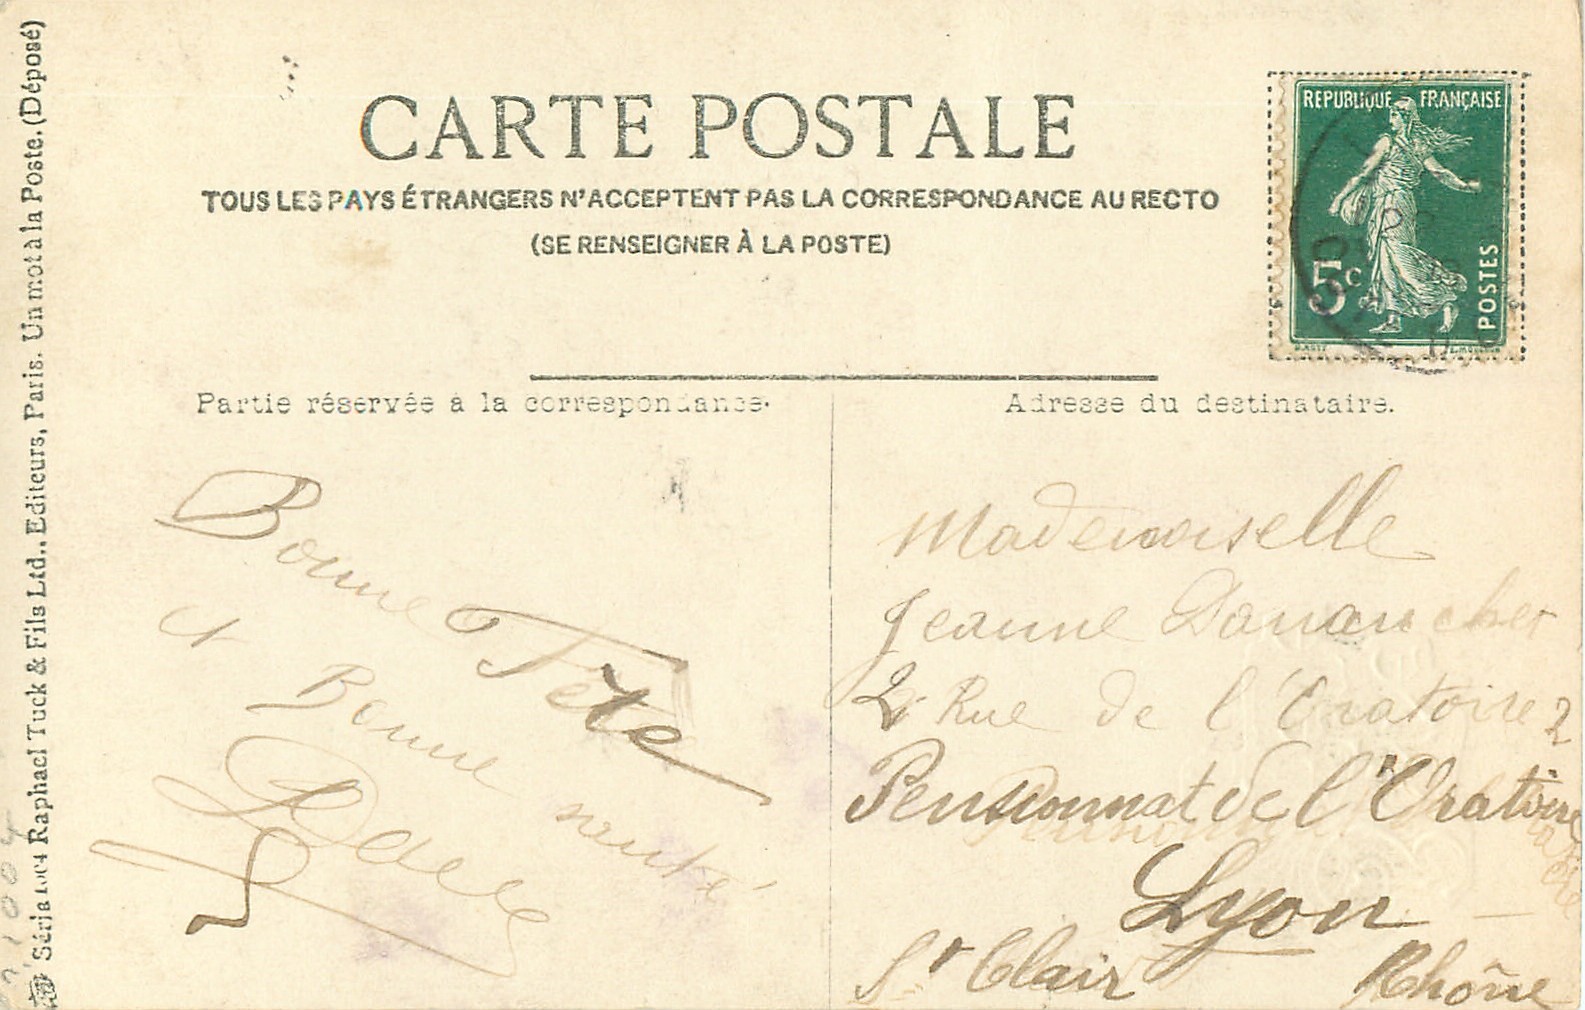 CARTE POSTALE
TOUS LES PAYS ÉTRANGERS N'ACCEPTENT PAS LA CORRESPONDANCE AU RECTO
(SE RENSEIGNER À LA POSTE)
REPUBLIQUE FRANÇAISE
5c
POSTES
Partie réservée à la correspondance.
Adresse du destinataire.
Bonne Fête
et Bonne santé
Mademoiselle
Jeanne
2 Rue de l'Oratoire 2
Pensionnat de l'Oratoire
Lyon
St Clair Rhône
Raphael Tuck & Fils Ltd., Editeurs, Paris. Un mot à la Poste. (Déposé)